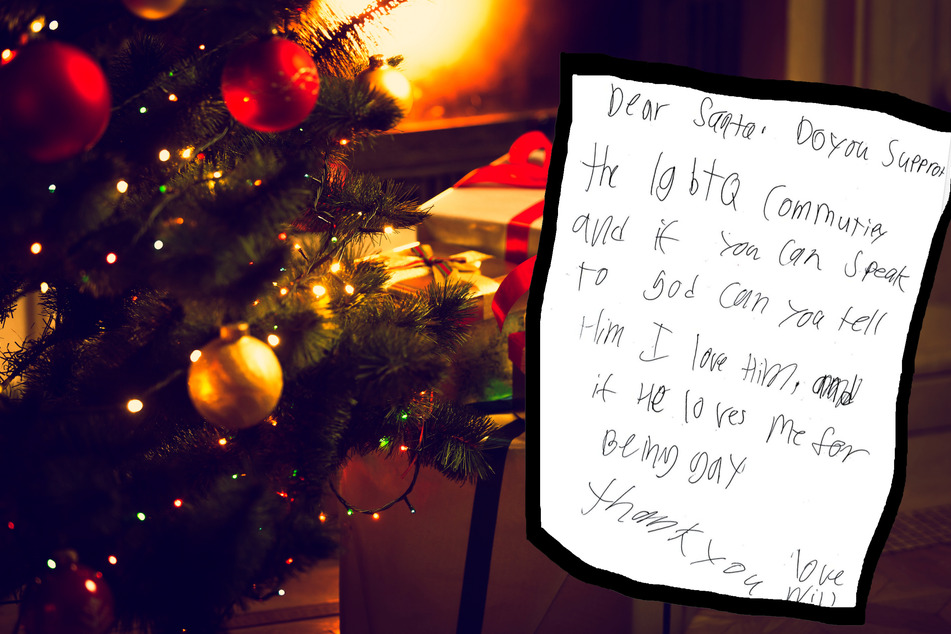 Dear Santa. Do you Support
the lgbtQ Community
and if you can speak
to god can you tell
Him I love Him, and
if He loves me for
Being gay
Thank you love
Will